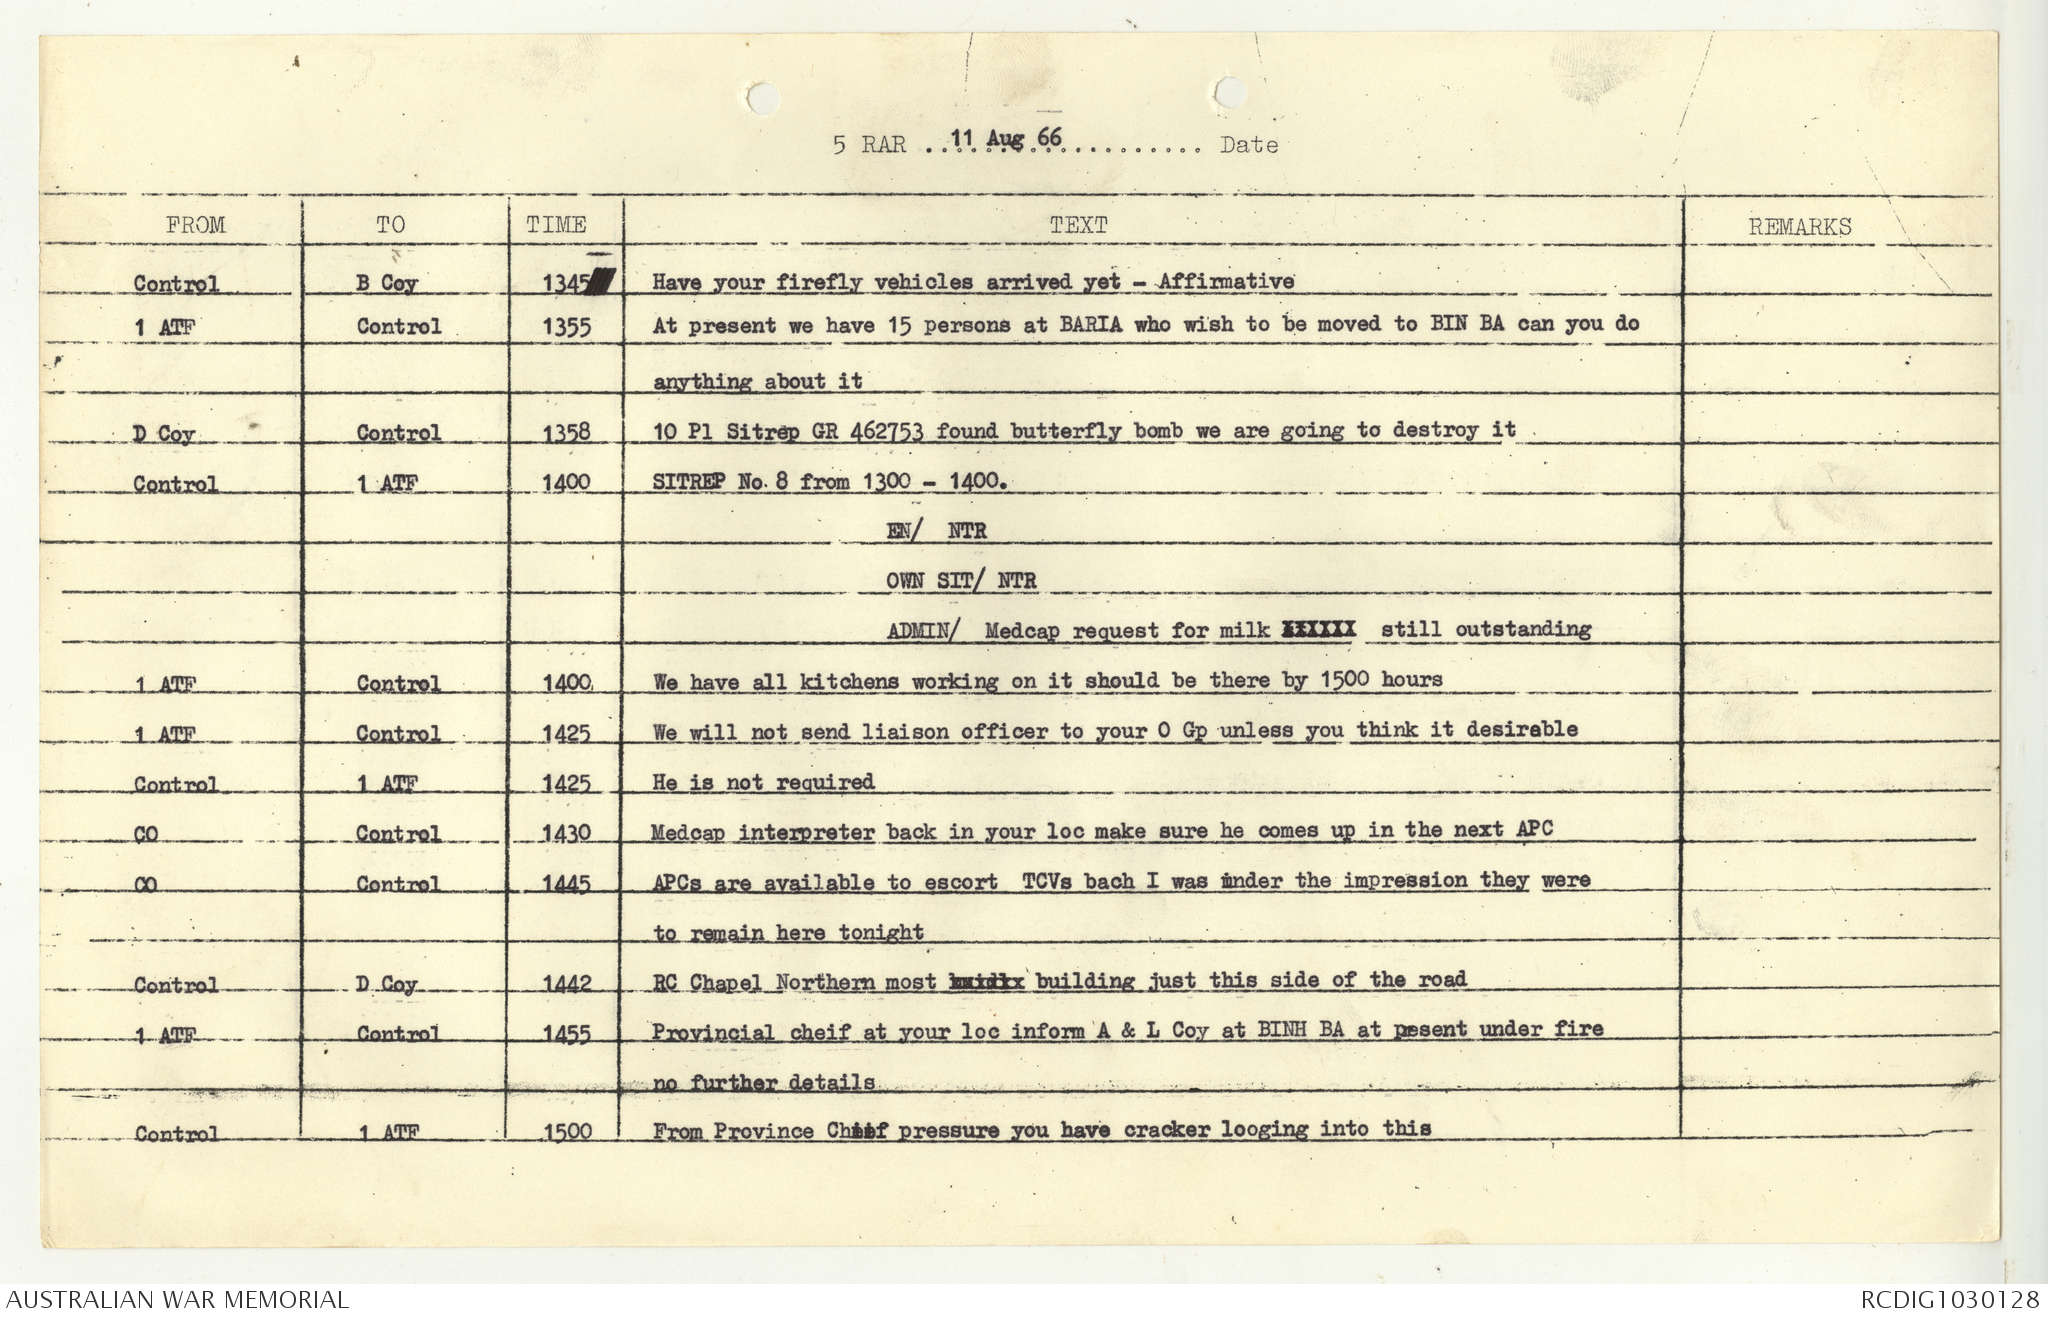 5 RAR .................... Date
11 Aug 66
FROM TO TIME TEXT REMARKS
Control B Coy 1345 Have your firefly vehicles arrived yet - Affirmative
1 ATF Control 1355 At present we have 15 persons at BARIA who wish to be moved to BIN BA can you do
anything about it
D Coy Control 1358 10 Pl Sitrep GR 462753 found butterfly bomb we are going to destroy it
Control 1 ATF 1400 SITREP No. 8 from 1300 - 1400.
EN/ NTR
OWN SIT/ NTR
ADMIN/ Medcap request for milk XXXXXX still outstanding
1 ATF Control 1400 We have all kitchens working on it should be there by 1500 hours
1 ATF Control 1425 We will not send liaison officer to your O Gp unless you think it desirable
Control 1 ATF 1425 He is not required
CO Control 1430 Medcap interpreter back in your loc make sure he comes up in the next APC
CO Control 1445 APCs are available to escort TCVs bach I was under the impression they were
to remain here tonight
Control D Coy 1442 RC Chapel Northern most building just this side of the road
1 ATF Control 1455 Provincial cheif at your loc inform A & L Coy at BINH BA at present under fire
no further details
Control 1 ATF 1500 From Province Chief pressure you have cracker looging into this
AUSTRALIAN WAR MEMORIAL RCDIG1030128